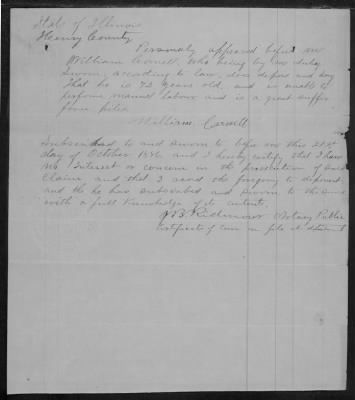 State of Illinois
Henry County
Personaly appeared before me
William Cornell, who being by me duly
Sworn, according to law, does depose and say
That he is 72 years old, and is unable to
perform manuel labour and is a great suffer
from piles
William Cornell
Subscribed to and sworn to before me this 21st
day of October 1896, and I hereby certify that I have
no interest or concern in the prosecution of said
Claim and that I read the forgoing to deponent
and tht he has subscribed and sworn to the same
with a full Knowledge of its contents.
J.B. Notary Public
Certificate of on file at